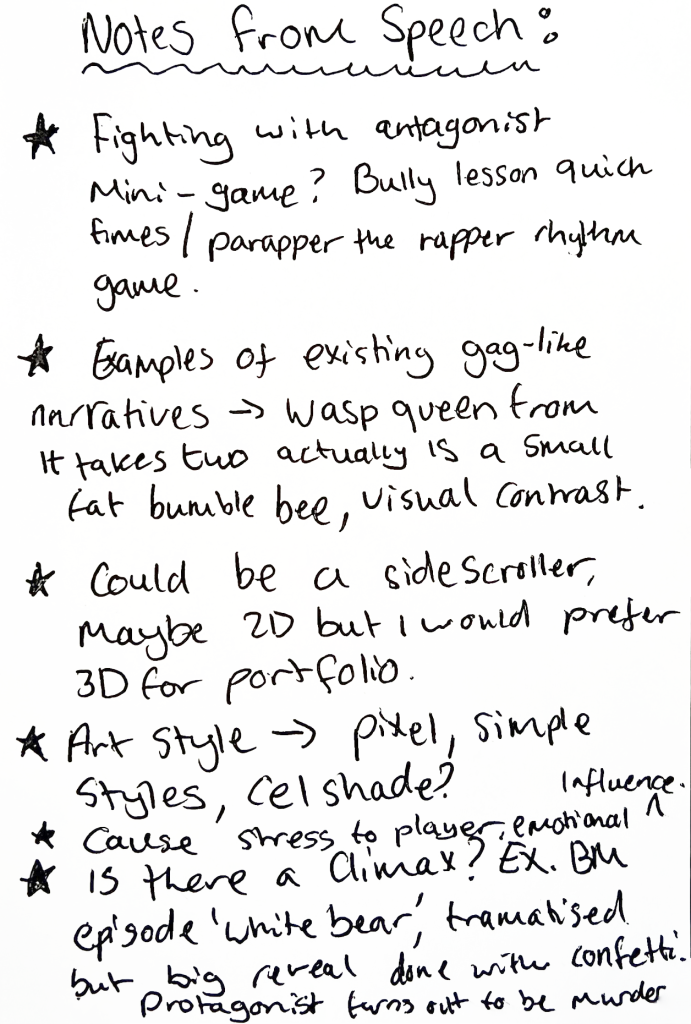 Notes from Speech:
★ Fighting with antagonist
Mini-game? Bully lesson quick
times/parapper the rapper rhythm
game.
★ Examples of existing gag-like
narratives → wasp queen from
It takes two actually is a small
fat bumble bee, visual contrast.
★ Could be a sidescroller,
Maybe 2D but I would prefer
3D for portfolio.
★ Art Style → pixel, simple
styles, cel shade?
★ Cause stress to player, emotional ^ influence.
★ Is there a climax? Ex. BM
episode 'white bear', tramatised
but big reveal done with confetti.
Protagonist turns out to be murder